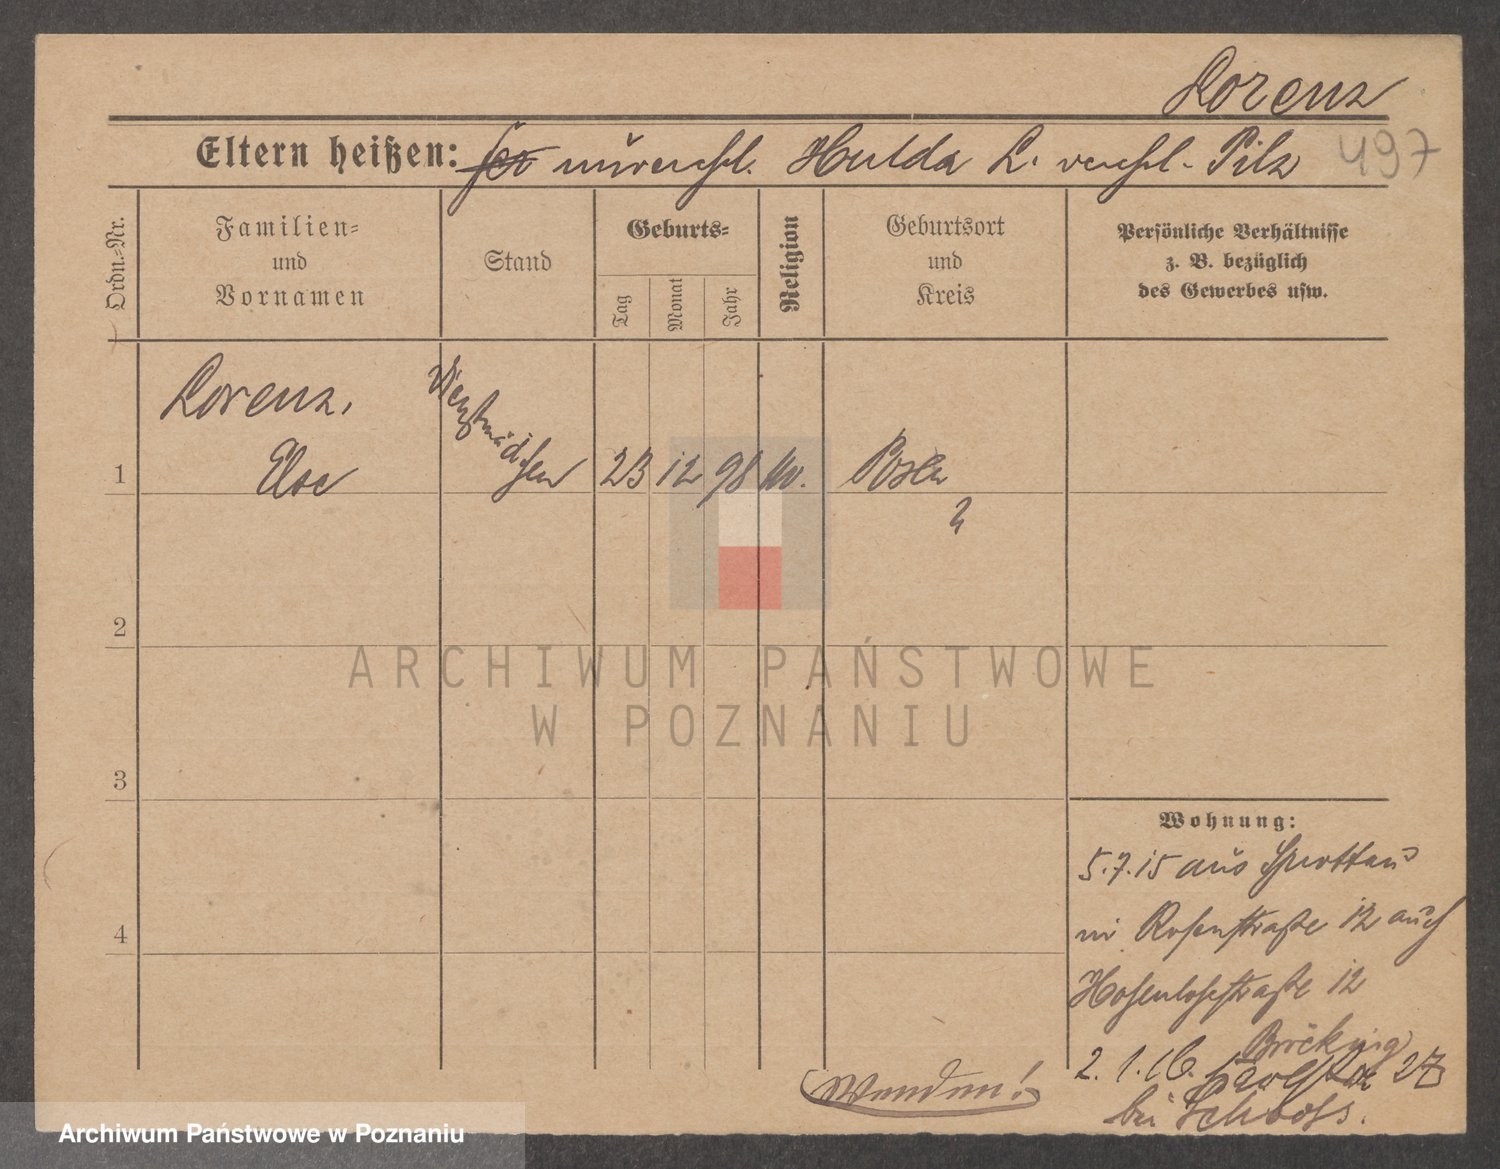 Lorenz
Eltern heißen: unverehl. Hulda L. verehl. Pilz 497
Ordn.=Nr.
Familien=
und
Vornamen
Stand
Geburts=
Tag
Monat
Jahr
Religion
Geburtsort
und
Kreis
Persönliche Verhältnisse
z. B. bezüglich
des Gewerbes usw.
Lorenz,
Dienstmädchen
1 Else 23 12 98 Posen
2
3
4
ARCHIWUM PAŃSTWOWE
W POZNANIU
Wohnung:
5.7.15 aus Sprottau
in Rosenstraße 12 auch
Hohenlohestraße 12
Bröcking
2. 1. 16. 27
bei Schoofs.
Wenden!
Archiwum Państwowe w Poznaniu